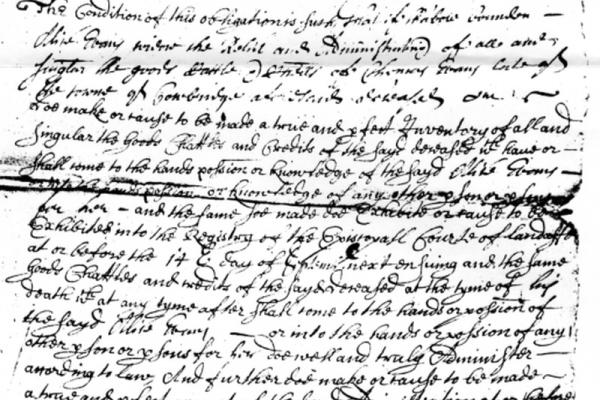 The Condition of this obligation is such that if the above bounden
Olive Evans widow the Relict and Administrat of all and
singular the goods Cattle & Creditts of Evans late of
the towne of Cowbridge deceased
doe make or cause to be made a true and pfect Inventory of all and
singular the Goods Chattles and Credits of the sayd deceased wch have or
shall come to the hands possion or knowledge of the sayd Olive Evans
or into the hands possion or knowledge of any other pson or psons
for her and the same soe made doe Exhibite or cause to be
Exhibited into the Registry of the Episcopall Courte of Landaffe
at or before the 14 day of next ensuing and the same
goods Chattles and credits of the sayd deceased at the tyme of his
death wch at any tyme after shall come to the hands or possion of
the sayd Olive Evans or into the hands or possion of any
other pson or psons for her doe well and truly Administer
according to Law And further doe make or cause to be made
a true and of